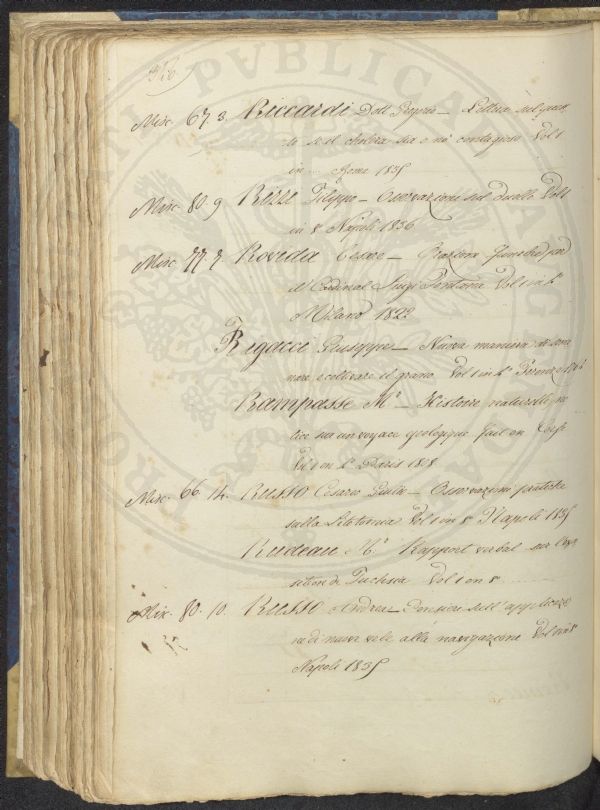 Misc. 67. 3. Riccardi Dott. — Lettera sul quesi-
to se il cholera sia o nò contagioso Vol 1
in .. Roma 1835
Misc. 80. 9 Rizze Filippo — Osservazioni sul duello Vol 1
in 8 Napoli 1836
Misc. 77. 7. Rovida Cesare — Orazione funebre pel
Cardinal Luigi Fontana Vol 1 in 4°
Milano 1822
Rigacci Giuseppe — Nuova maniera di semi-
nare e coltivare il grano. Vol 1 in 4° Firenze
Rampasse Mr. — Histoire naturelle, no-
tice sur un voyage géologique fait en Corse
Vol 1 en 4° Paris
Misc. 66. 14. Russo Cesario Giulio — Osservazioni pratiche
sulla Litotomia Vol 1 in 8° Napoli 1835
Rudeau Mr. Rapport verbal sur l'expo-
sition de Vol 1 en 8
Mis. 80. 10. Russo Andrea — Pensieri sull' applicazio-
ne di nuove vele alla navigazione Vol 1 in 8°
Napoli 1835